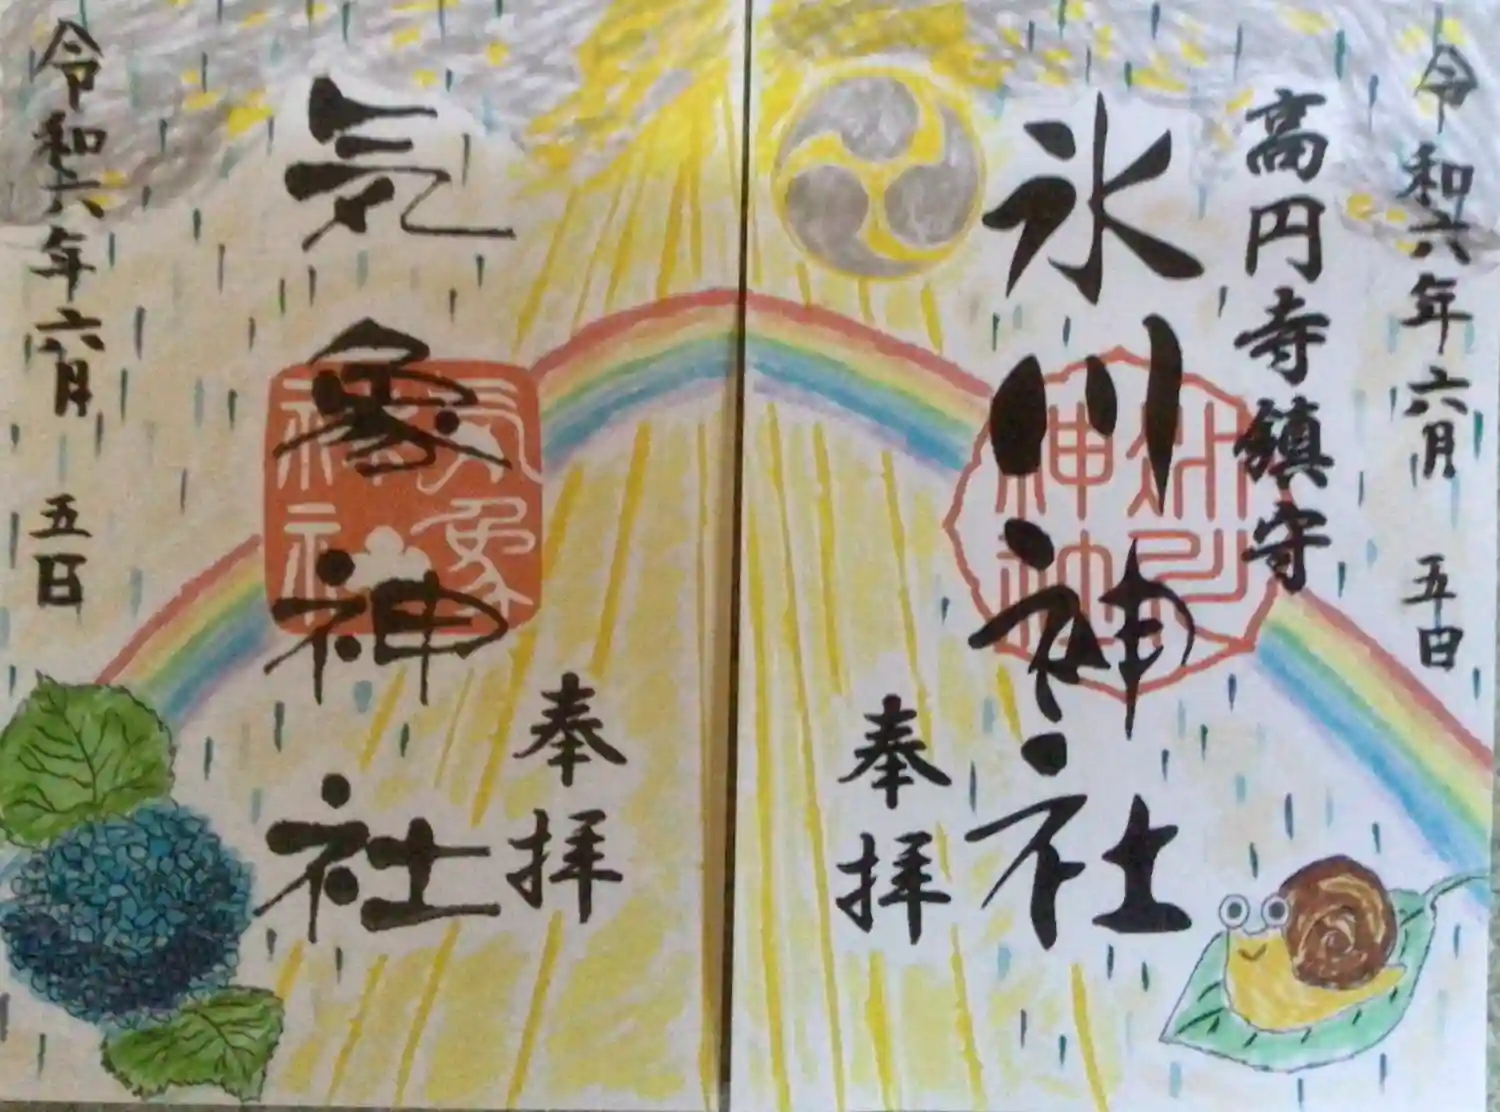 令和六年六月 五日
高円寺鎮守
氷川神社
奉拝
奉拝
気象神社
令和六年六月 五日
氷川
神社
気象
神社